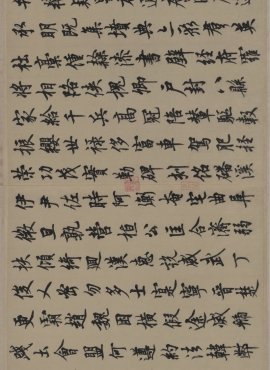 承明既集墳典亦聚群英
杜稾鍾隸漆書壁經府羅
將相路俠槐卿戶封八縣
家給千兵高冠陪輦驅轂
振纓世祿侈富車駕肥輕
策功茂實勒碑刻銘磻溪
伊尹佐時阿衡奄宅曲阜
微旦孰營桓公匡合濟弱
扶傾綺迴漢惠說感武丁
俊乂密勿多士寔寧晉楚
更霸趙魏困橫假途滅虢
踐土會盟何遵約法韓弊